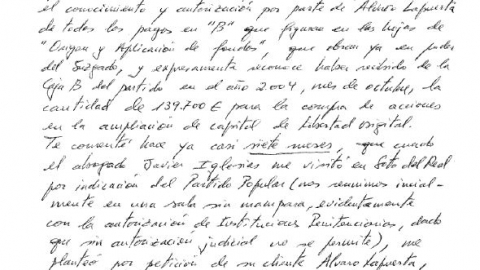 el conocimiento y autorización por parte de Alvaro Lapuerta
de todos los pagos en "B" que figuran en las hojas de
"Origen y Aplicación de fondos", que obran ya en poder
del Juzgado, y expresamente reconoce haber recibido de la
Caja B del partido en el año 2004, mes de octubre, la
cantidad de 139.700 € para la compra de acciones
en la ampliación de capital de Libertad Digital.
Te comenté hace ya casi siete meses, que cuando
el abogado Javier Iglesias me visitó en Soto del Real
por indicación del Partido Popular (nos reunimos inicial-
mente en una sala sin mampara, evidentemente
con la autorización de Instituciones Penitenciarias, dado
que sin autorización judicial no se permite), me
planteó por petición de su cliente Alvaro Lapuerta,